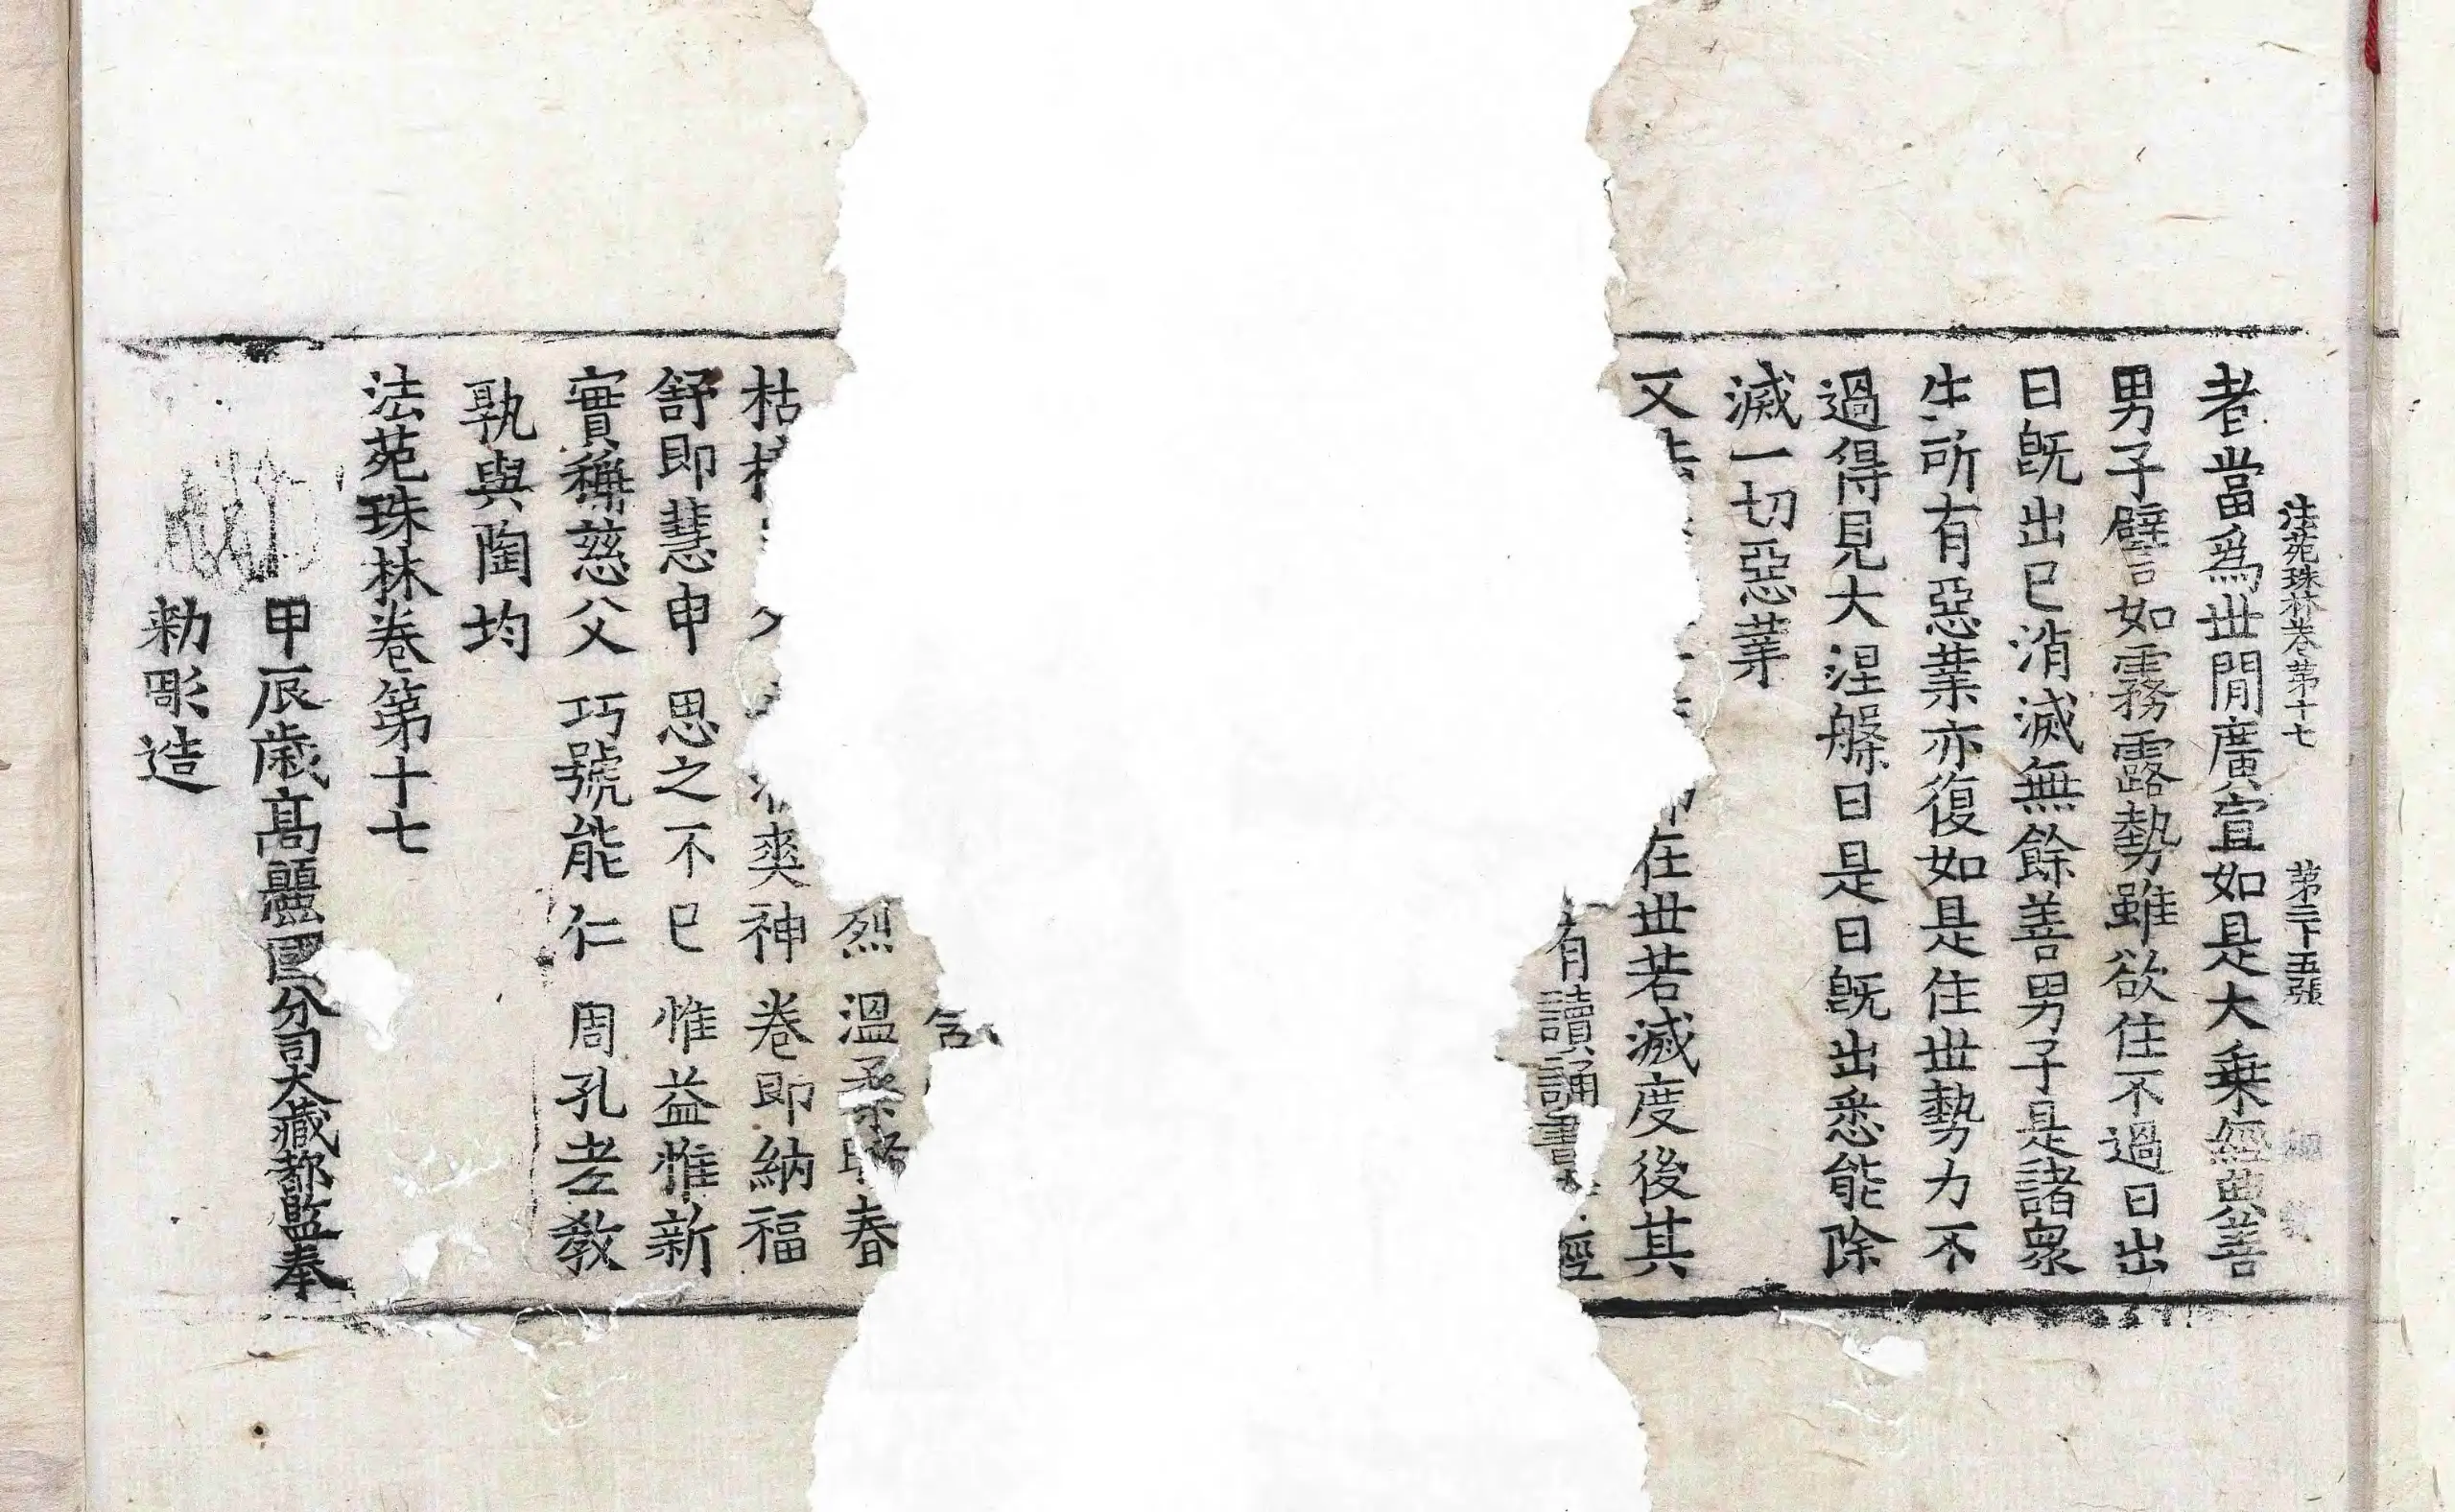 法苑珠林卷第十七 第二十五張
者當爲世閒廣宣如是大乗經典善
男子譬如霧露勢雖欲住不過日出
日旣出已消滅無餘善男子是諸衆
生所有惡業亦復如是住世勢力不
過得見大涅槃日是日旣出悉能除
滅一切惡業
又 在世若滅度後其
有讀誦書 經
含
烈 溫 春
枯 爽神 卷即納福
舒即慧申 思之不已 惟益惟新
實稱慈父 巧號能仁 周孔老教
孰與陶均
法苑珠林卷第十七
甲辰歳髙麗國分司大藏都監奉
勑彫造